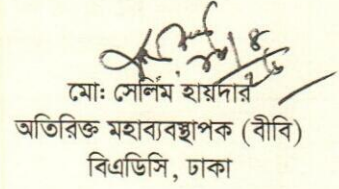 মোঃ সেলিম হায়দার
অতিরিক্ত মহাব্যবস্থাপক (বীবি)
বিএডিসি, ঢাকা